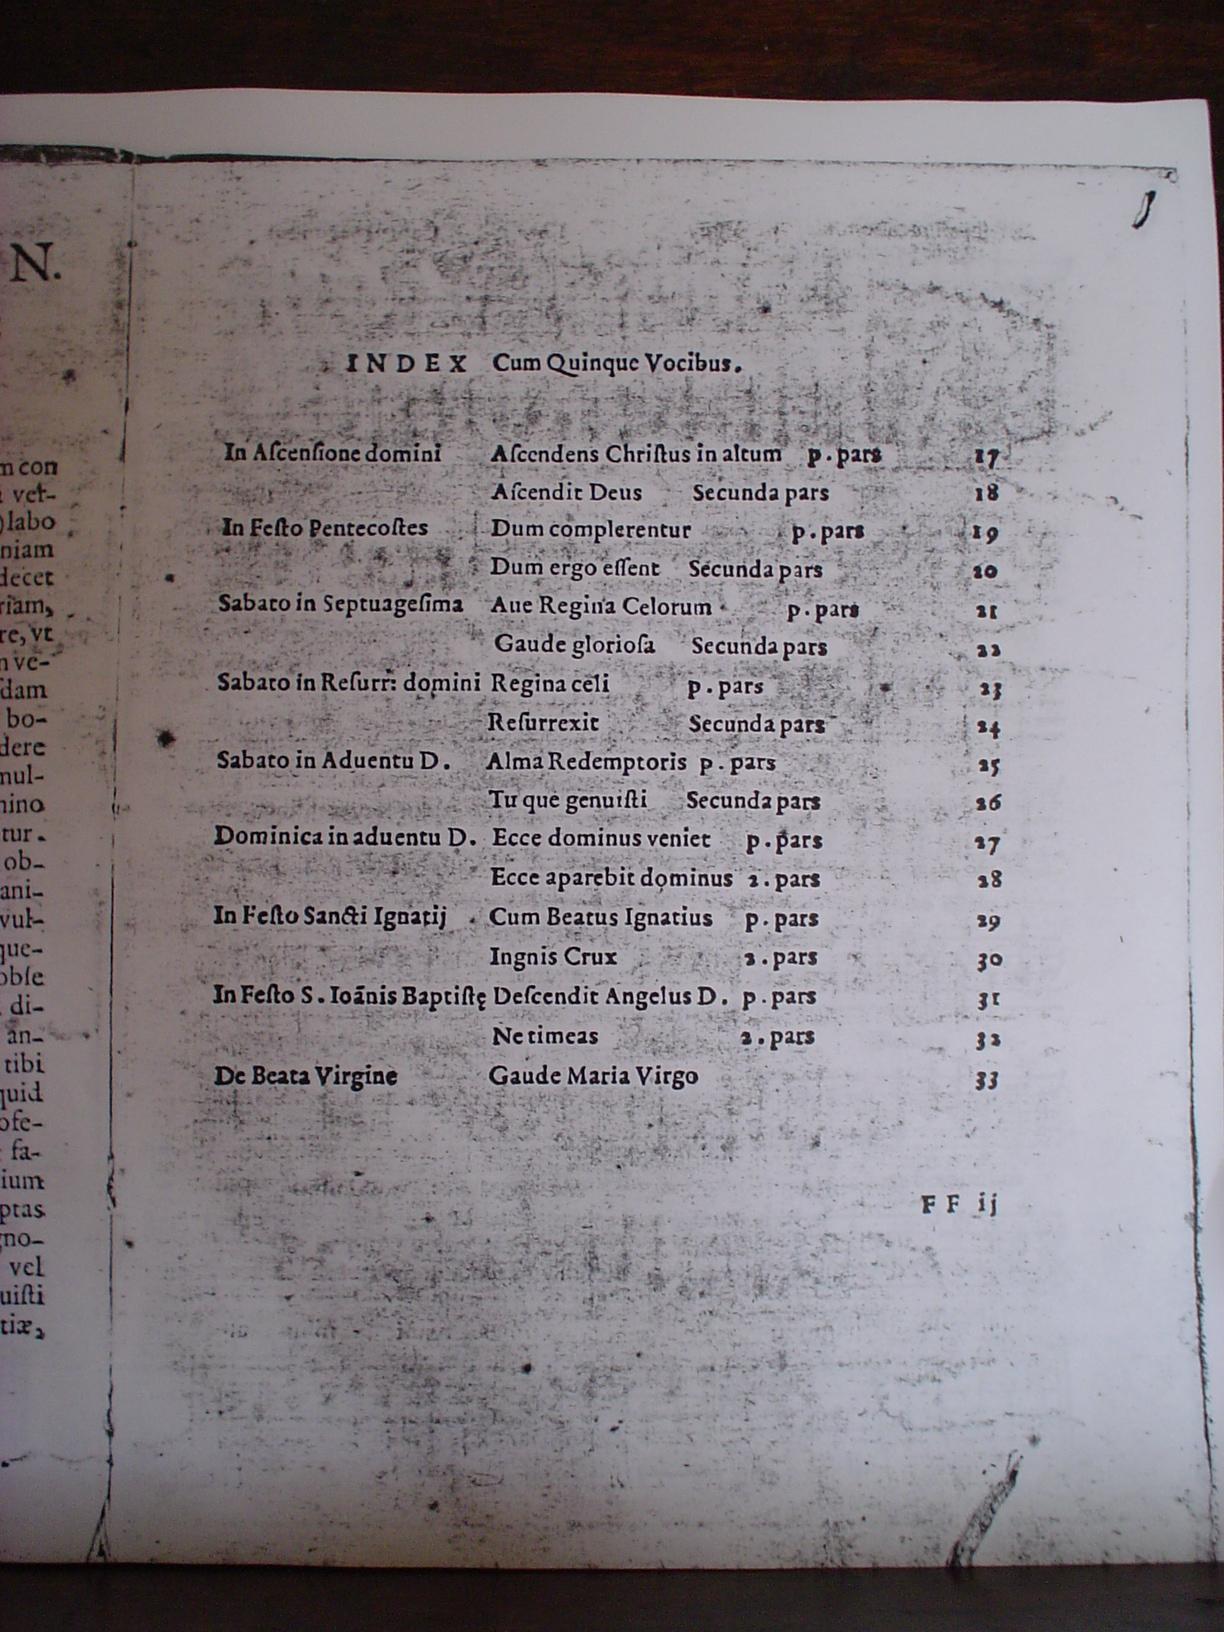 N.
m con
vet-
labo
niam
decet
riam,
re, vt
n ve-
dam
bo-
dere
mul-
nino
tur.
ob-
ani-
vul-
que-
obſe
di-
an-
tibi
quid
ofe-
fa-
ium
ptas
gno-
vel
uiſti
tiæ,
INDEX Cum Quinque Vocibus.
In Aſcenſione domini Aſcendens Chriſtus in altum p. pars 17
Aſcendit Deus Secunda pars 18
In Feſto Pentecoſtes Dum complerentur p. pars 19
Dum ergo eſſent Secunda pars 20
Sabato in Septuageſima Aue Regina Celorum p. pars 21
Gaude glorioſa Secunda pars 22
Sabato in Reſurr: domini Regina celi p. pars 23
Reſurrexit Secunda pars 24
Sabato in Aduentu D. Alma Redemptoris p. pars 25
Tu que genuiſti Secunda pars 26
Dominica in aduentu D. Ecce dominus veniet p. pars 27
Ecce aparebit dominus 2. pars 28
In Feſto Sancti Ignatij Cum Beatus Ignatius p. pars 29
Ingnis Crux 2. pars 30
In Feſto S. Ioānis Baptiſtę Deſcendit Angelus D. p. pars 31
Ne timeas 2. pars 32
De Beata Virgine Gaude Maria Virgo 33
FF ij